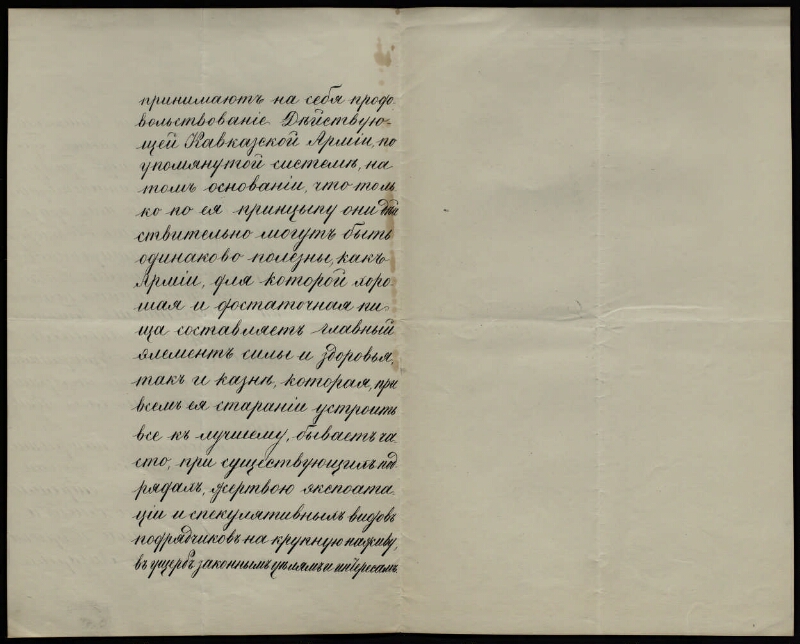 принимаютъ на себя продо
вольствованіе Дѣйствую-
щей Кавказской Арміи, по
упомянутой системѣ, на
томъ основаніи, что толь
ко по ея принцыпу они дѣй
ствительно могутъ быть
одинаково полезны, какъ
Арміи, для которой хоро
шая и достаточная пи-
ща составляетъ главный
элементъ силы и здоровья,
такъ и казнѣ, которая, при
всемъ ея стараніи устроить
все къ лучшему, бываетъ ча
сто, при существующихъ под
рядахъ, жертвою экспоата
ціи и спекулятивныхъ видовъ
подрядчиковъ на крупную наживу,
въ ущербъ законнымъ цѣлямъ и интересамъ